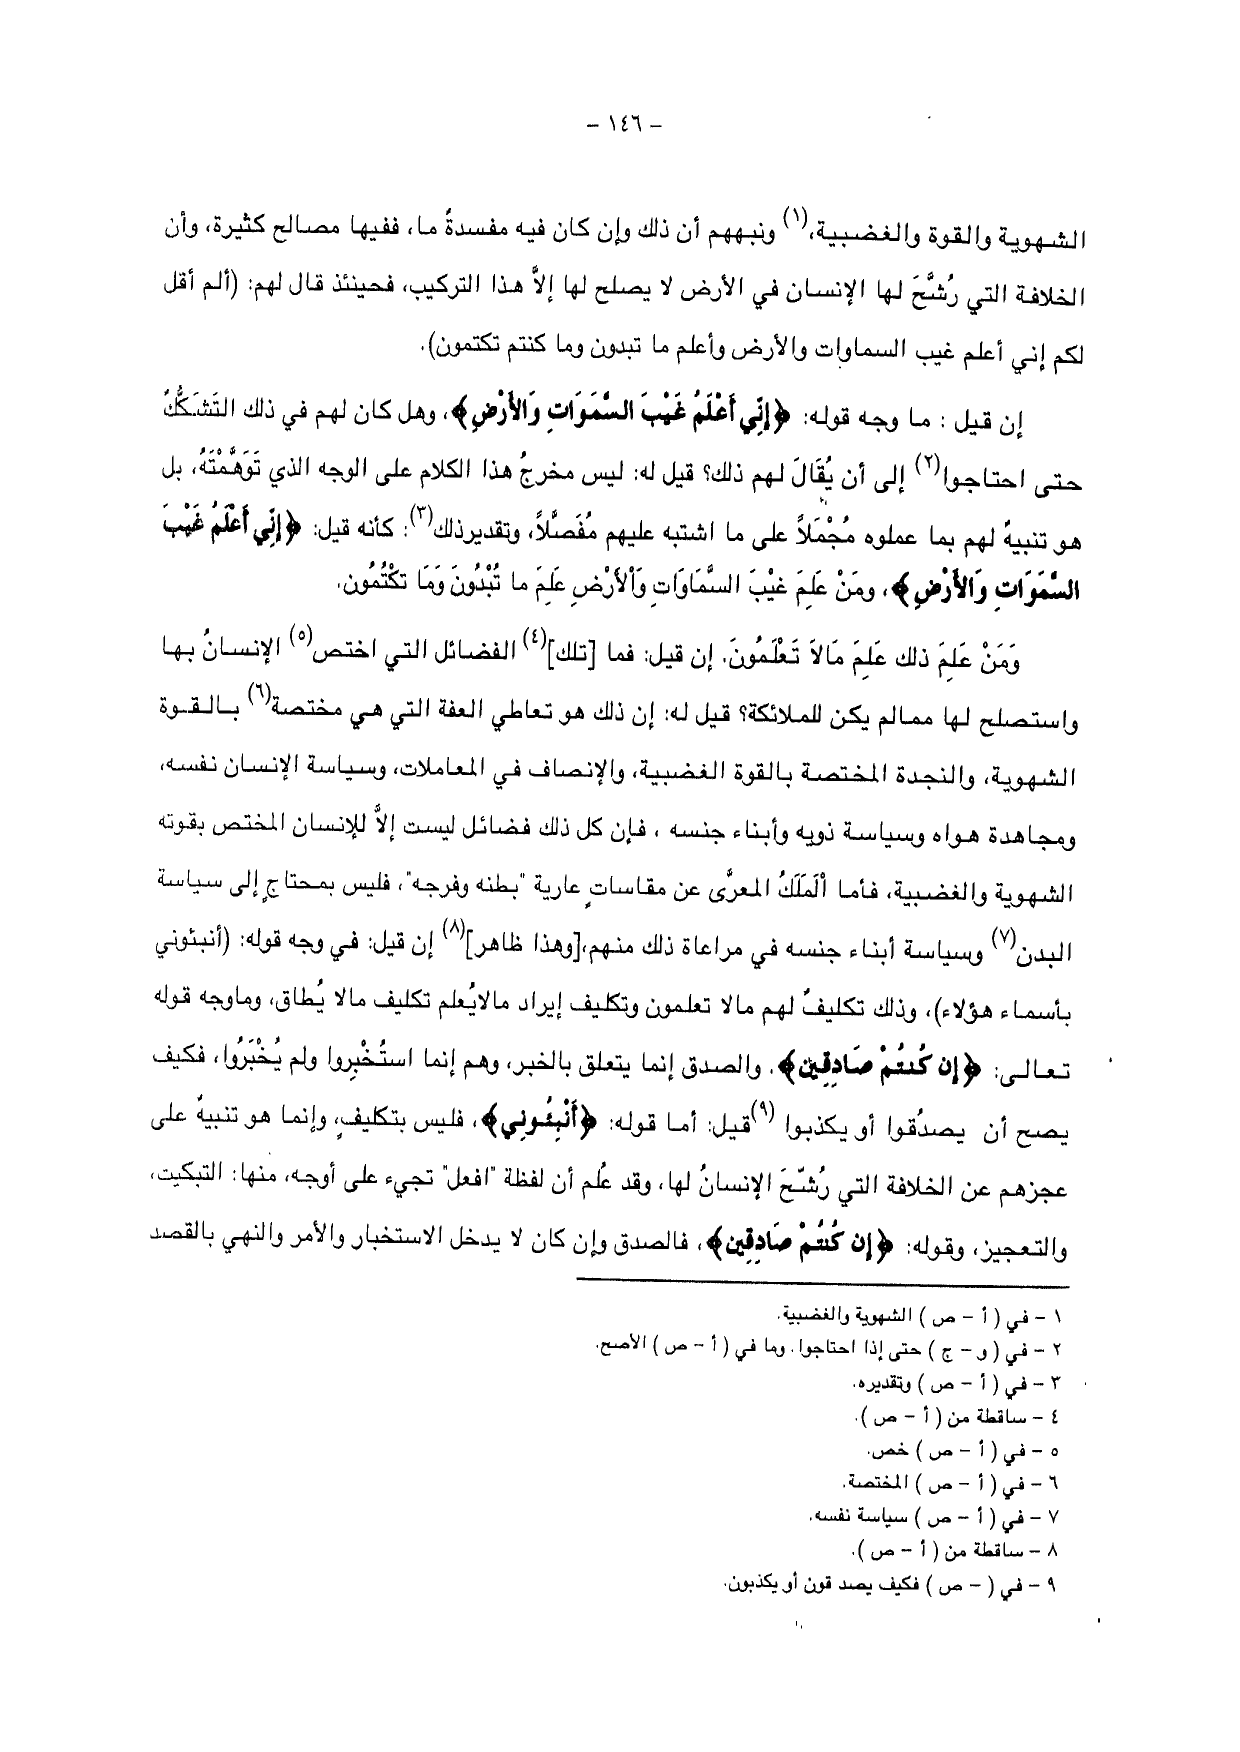 – ١٤٦ –
الشهوية والقوة والغضبية،(١) ونبههم أن ذلك وإن كان فيه مفسدةُ ما، ففيها مصالح كثيرة، وأن
الخلافة التي رُشَّحَ لها الإنسان في الأرض لا يصلح لها إلاَّ هذا التركيب، فحينئذ قال لهم: (ألم أقل
لكم إني أعلم غيب السماوات والأرض وأعلم ما تبدون وما كنتم تكتمون).
إن قيل : ما وجه قوله: ﴿إِنِّي أَعْلَمُ غَيْبَ السَّمَوَاتِ وَالأَرْضِ﴾، وهل كان لهم في ذلك التَشَكُّكُ
حتى احتاجوا(٢) إلى أن يُقَالَ لهم ذلك؟ قيل له: ليس مخرجُ هذا الكلام على الوجه الذي تَوَهَّمْتَهُ، بل
هو تنبيهٌ لهم بما عملوه مُجْمَلاً على ما اشتبه عليهم مُفَصَّلاً، وتقديرذلك(٣): كأنه قيل: ﴿إِنِّي أَعْلَمُ غَيْبَ
السَّمَوَاتِ وَالأَرْضِ﴾، ومَنْ عَلِمَ غَيْبَ السَّمَاوَاتِ وَالْأَرْضِ عَلِمَ ما تُبْدُونَ وَمَا تَكْتُمُونِ.
وَمَنْ عَلِمَ ذلك عَلِمَ مَالاَ تَعْلَمُونَ. إن قيل: فما [تلك](٤) الفضائل التي اختص(٥) الإنسانُ بها
واستصلح لها ممالم يكن للملائكة؟ قيل له: إن ذلك هو تعاطي العفة التي هي مختصة(٦) بالقوة
الشهوية، والنجدة المختصة بالقوة الغضبية، والإنصاف في المعاملات، وسياسة الإنسان نفسه،
ومجاهدة هواه وسياسة ذويه وأبناء جنسه ، فإن كل ذلك فضائل ليست إلاَّ للإنسان المختص بقوته
الشهوية والغضبية، فأما اْلَمَلَكُ المعرَّى عن مقاساتِ عارية "بطنه وفرجه"، فليس بمحتاجٍ إلى سياسة
البدن(٧) وسياسة أبناء جنسه في مراعاة ذلك منهم،[وهذا ظاهر](٨) إن قيل: في وجه قوله: (أنبئوني
بأسماء هؤلاء)، وذلك تكليفٌ لهم مالا تعلمون وتكليف إيراد مالايُعلم تكليف مالا يُطاق، وماوجه قوله
تعالى: ﴿إِن كُنتُمْ صَادِقِينَ﴾. والصدق إنما يتعلق بالخبر، وهم إنما استُخْبِروا ولم يُخْبَرُوا، فكيف
يصح أن يصدُقوا أو يكذبوا (٩)قيل: أما قوله: ﴿أَنْبِئُونِي﴾، فليس بتكليفٍ، وإنما هو تنبيهٌ على
عجزهم عن الخلافة التي رُشّحَ الإنسانُ لها، وقد عُلم أن لفظة "افعل" تجيء على أوجه، منها: التبكيت،
والتعجيز، وقوله: ﴿إِن كُنتُمْ صَادِقِينَ﴾، فالصدق وإن كان لا يدخل الاستخبار والأمر والنهي بالقصد
١ – في ( أ – ص ) الشهوية والغضبية.
٢ – في ( و – ج ) حتى إذا احتاجوا. وما في ( أ – ص ) الأصح.
٣ – في ( أ – ص ) وتقديره.
٤ – ساقطة من ( أ – ص ).
٥ – في ( أ – ص ) خص.
٦ – في ( أ – ص ) المختصة.
٧ – في ( أ – ص ) سياسة نفسه.
٨ – ساقطة من ( أ – ص ).
٩ – في ( – ص ) فكيف يصد قون أو يكذبون.